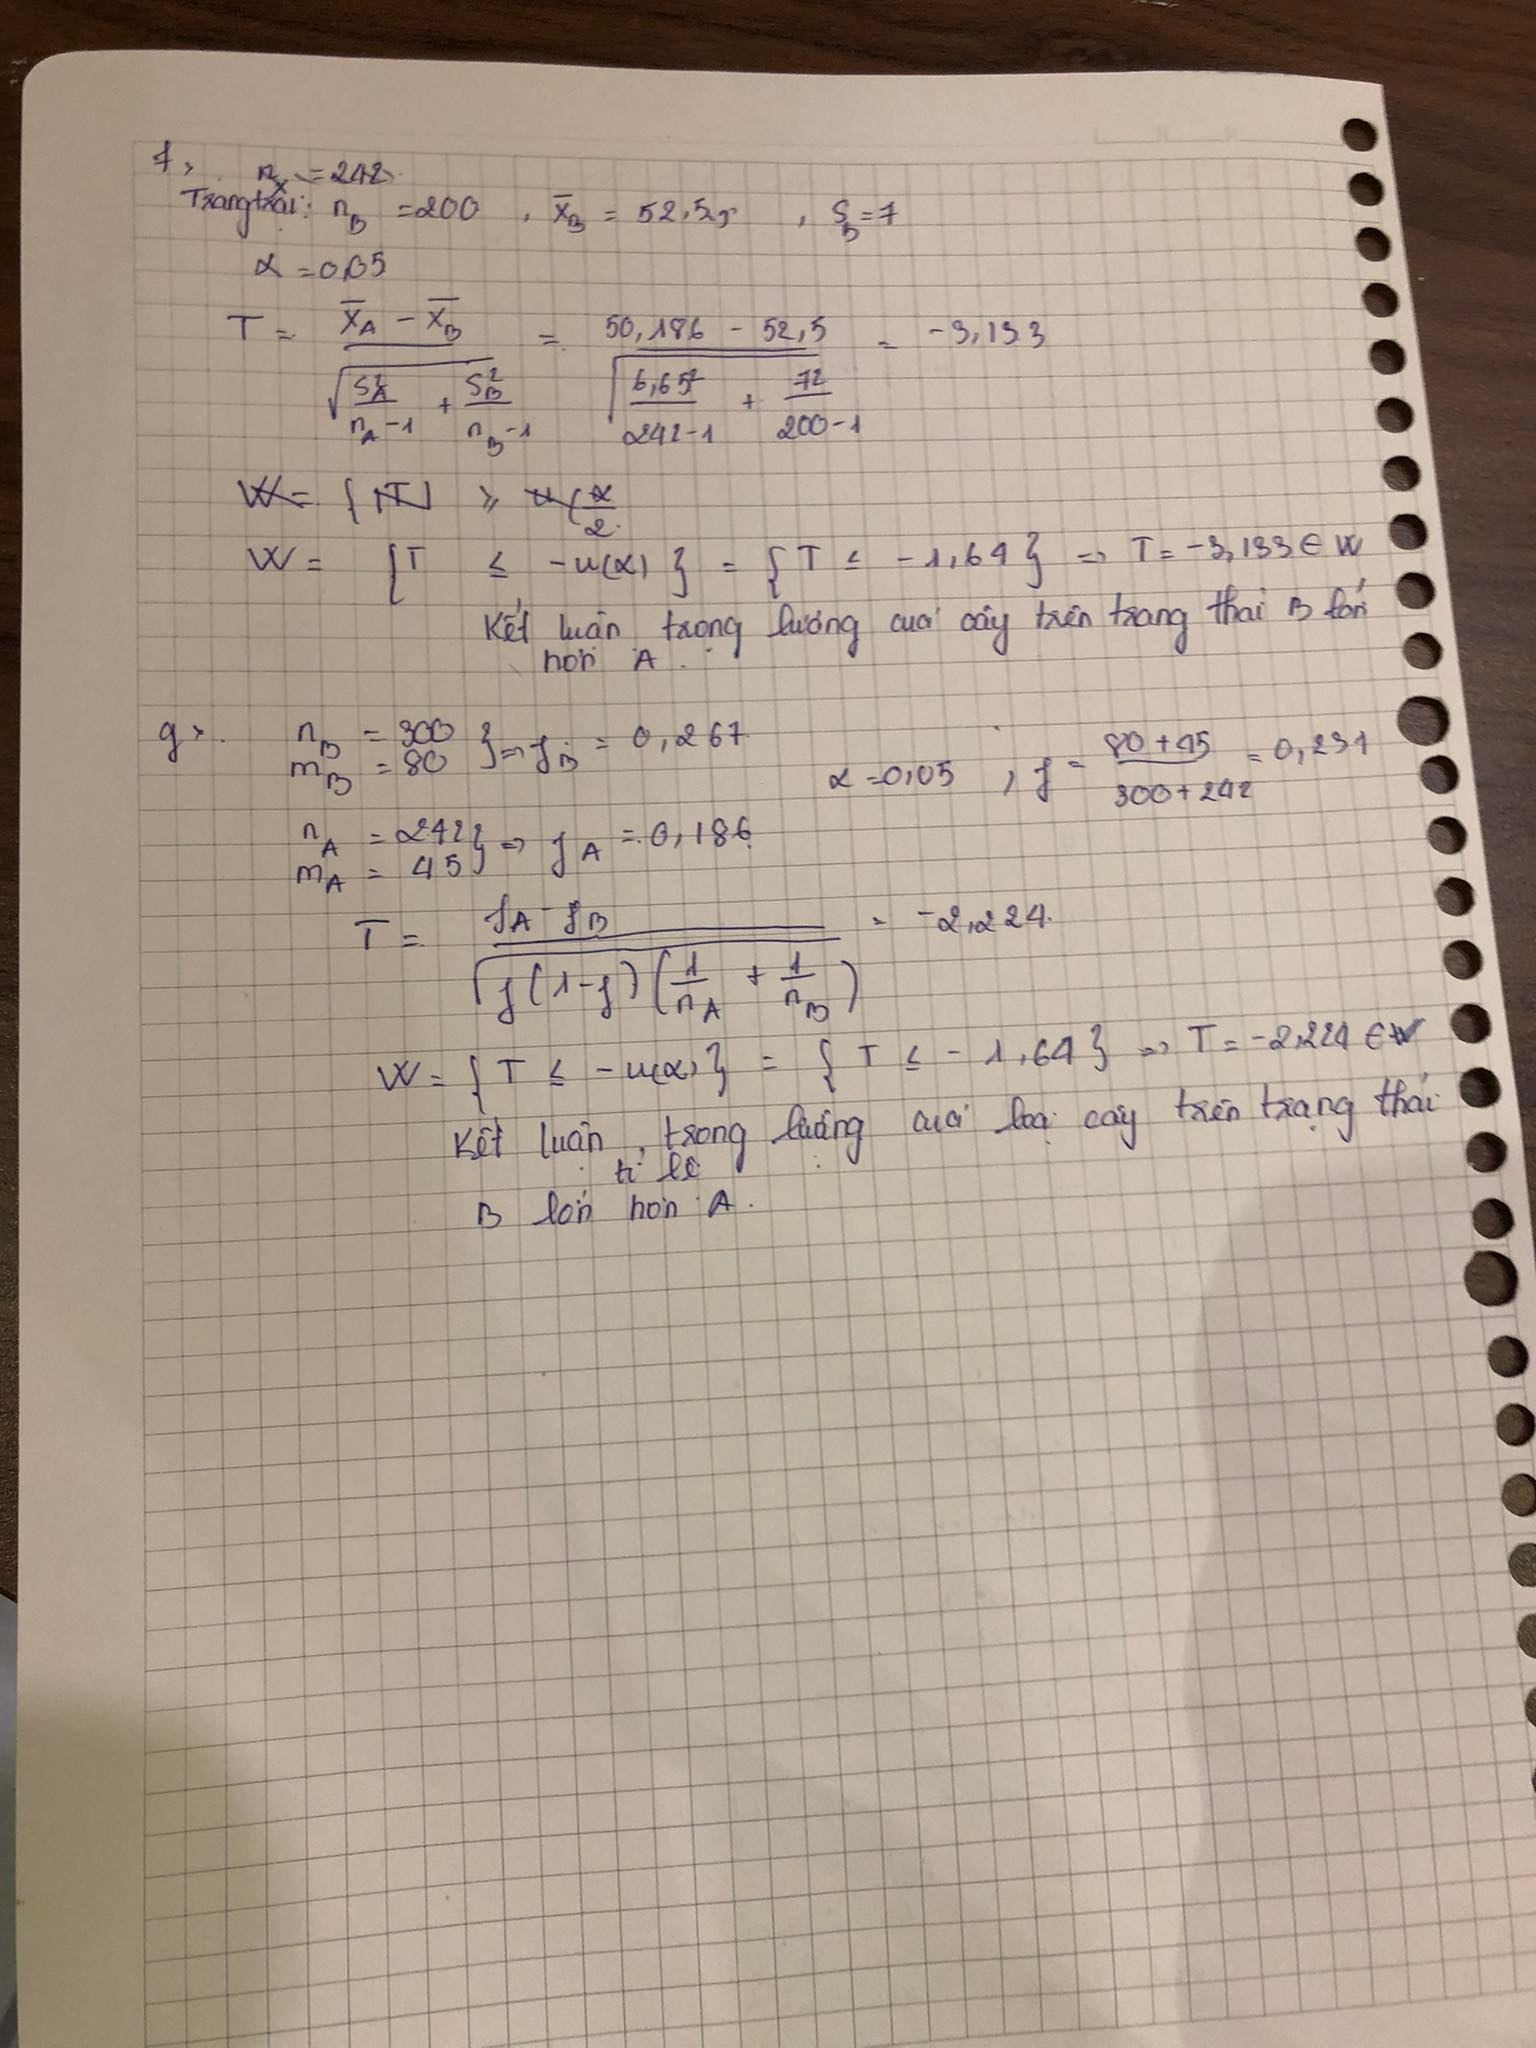 f, n_x = 242
Trang trại: n_B = 200 , X̄_B = 52,5 , S_B = 7
α = 0,05
T = (X̄_A − X̄_B) / √(S²_A/(n_A−1) + S²_B/(n_B−1)) = (50,186 − 52,5) / √(6,65²/(242−1) + 7²/(200−1)) = −3,133
W = { |T| ≥ u(α/2
W = { T ≤ −u(α) } = { T ≤ −1,64 } => T = −3,133 ∈ W
Kết luận trọng lượng của cây trên trang thái B lớn
hơn A.
g, n_B = 300
m_B = 80 } => f_B = 0,267
α = 0,05 , f = (80+45)/(300+242) = 0,231
n_A = 242
m_A = 45 } => f_A = 0,186
T = (f_A − f_B) / √(f(1−f)(1/n_A + 1/n_B)) = −2,224.
W = { T ≤ −u(α) } = { T ≤ −1,64 } => T = −2,224 ∈ W
Kết luận, trọng lượng của loại cây trên trạng thái
tỉ lệ
B lớn hơn A.